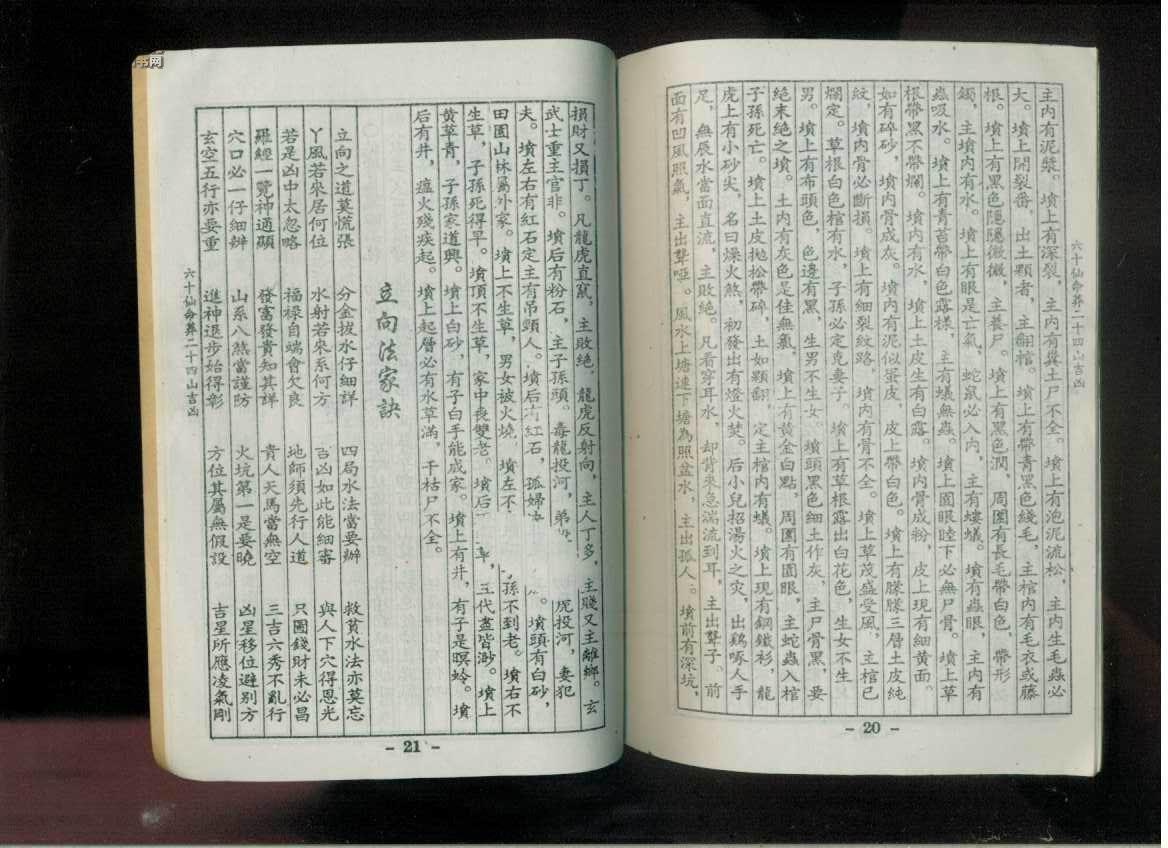 六十仙命葬二十四山吉凶
主內有泥漿。墳上有深裂，主內有糞土尸不全。墳上有泡泥流松，主內生毛蟲必
大。墳上開裂番，出土顆者，主翻棺。墳上有帶青黑色綫毛，主棺內有毛衣或藤
根。墳上有黑色隱隱微微，主養尸。墳上有黑色潤，周圍有長毛帶白色，帶形
鐲，主墳內有水。墳上有眼是亡氣，蛇鼠必入內，主有螻蟻。墳有蟲眼，墳內有
蟲吸水。墳上有青苔帶白色露樣，主有蟻無蟲。墳上圓眼睦下必無尸骨。墳上草
根帶黑不帶爛。墳內有水，墳上土皮生有白露。墳內骨成粉，皮上現有細黄面。
如有碎，墳內骨成灰。墳內有泥似蛋皮，皮上帶白色。墳上有朦朦三層土皮純
紋，墳內骨必斷損。墳上有細裂紋路，墳內有骨不全。墳上草茂盛受風，主棺已
爛定。草根白色棺有水，子孫必定克妻子。墳上有草根露出白花色，生女不生
男。墳上有布頭色，色邊有黑，生男不生女。墳頭黑色細土作灰，主尸骨黑，要
絕未絕之墳。土內有灰色是佳無氣，墳上有黄金白點，周圍有圓眼，主蛇蟲入棺
子孫死亡。墳上土皮抛松帶碎，土如顆翻，定主棺內有蟻。墳上現有銅鐵衫，龍
虎上有小砂尖，名曰燥火煞，初發出有燈火焚。后小兒招湯火之灾，出鷄啄人手
足，無辰水當面直流，主敗絕。凡看穿耳水，却背來急湍流到耳，主出聾子。前
面有凹風照氣，主出聾啞。風水上塘連下塘為照盆水，主出孤人。墳前有深坑，
- 20 -
損財又損丁。凡龍虎直竄，主敗絕。龍虎反射向，主人丁多，主賤又主離鄉。玄
武士重主官非。墳后有粉石，主子孫頭。毒龍投河，弟 厄投河，妻犯
夫。墳左右有紅石定主有吊頸人。墳后有紅石，孤婦 。墳頭有白砂，
田園山林屬外家。墳上不生草，男女被火燒。墳左不 孫不到老。墳右不
生草，子孫死得早。墳頂不生草，家中喪雙老。墳后 草，五代盡皆渺。墳上
黄草青，子孫家道興。墳上白砂，有子白手能成家。墳上有井，有子是暝蛉。墳
后有井，瘟火殘疾起。墳上起層必有水草滿，干枯尸不全。
立向法家訣
立向之道莫慌張 分金拔水仔細詳 四局水法當要辦 救貧水法亦莫忘
丫風若來居何位 水射若來系何方 吉凶如此能細審 與人下穴得恩光
若是凶中太忽略 福禄自端會欠良 地師須先行人道 只圖錢財未必昌
羅經一覽神通顯 發富發貴知其詳 貴人天馬當無空 三吉六秀不亂行
穴口必一仔細辨 山系八煞當謹防 火坑第一是要曉 凶星移位避别方
玄空五行亦要重 進神退步始得彰 方位其屬無假設 吉星所應凌氣剛
六十仙命葬二十四山吉凶
- 21 -
书网